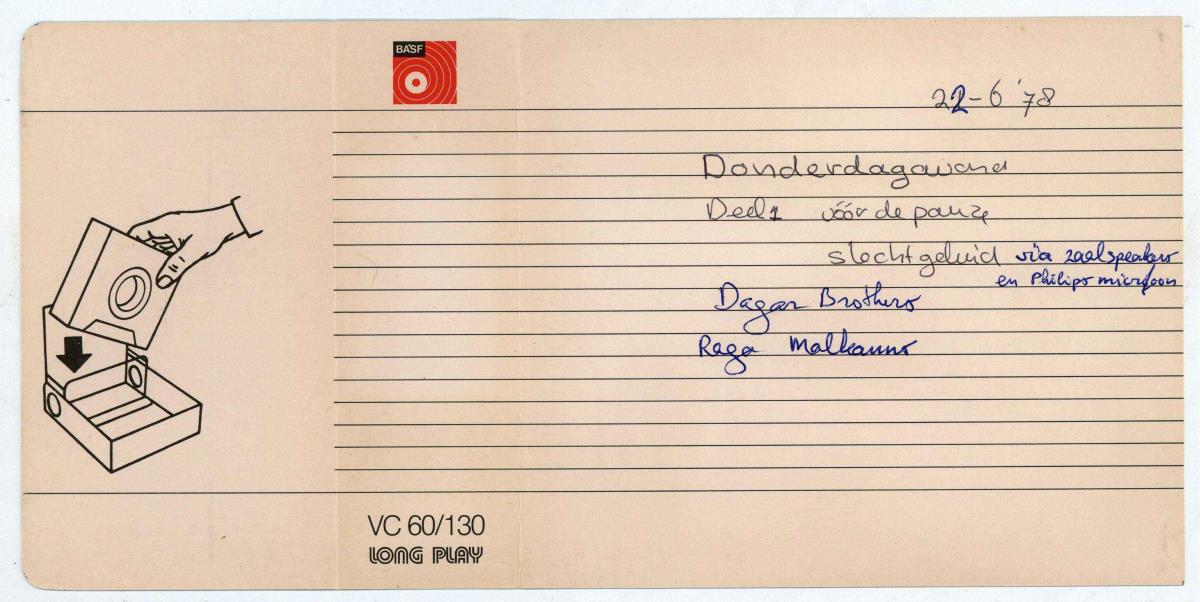 BASF
22-6 '78
Donderdagavond
Deel 1 vóór de pauze
slecht geluid via zaalspeakers
en Philips microfoon
Dagar Brothers
Raga Malkauns
VC 60/130
LONG PLAY